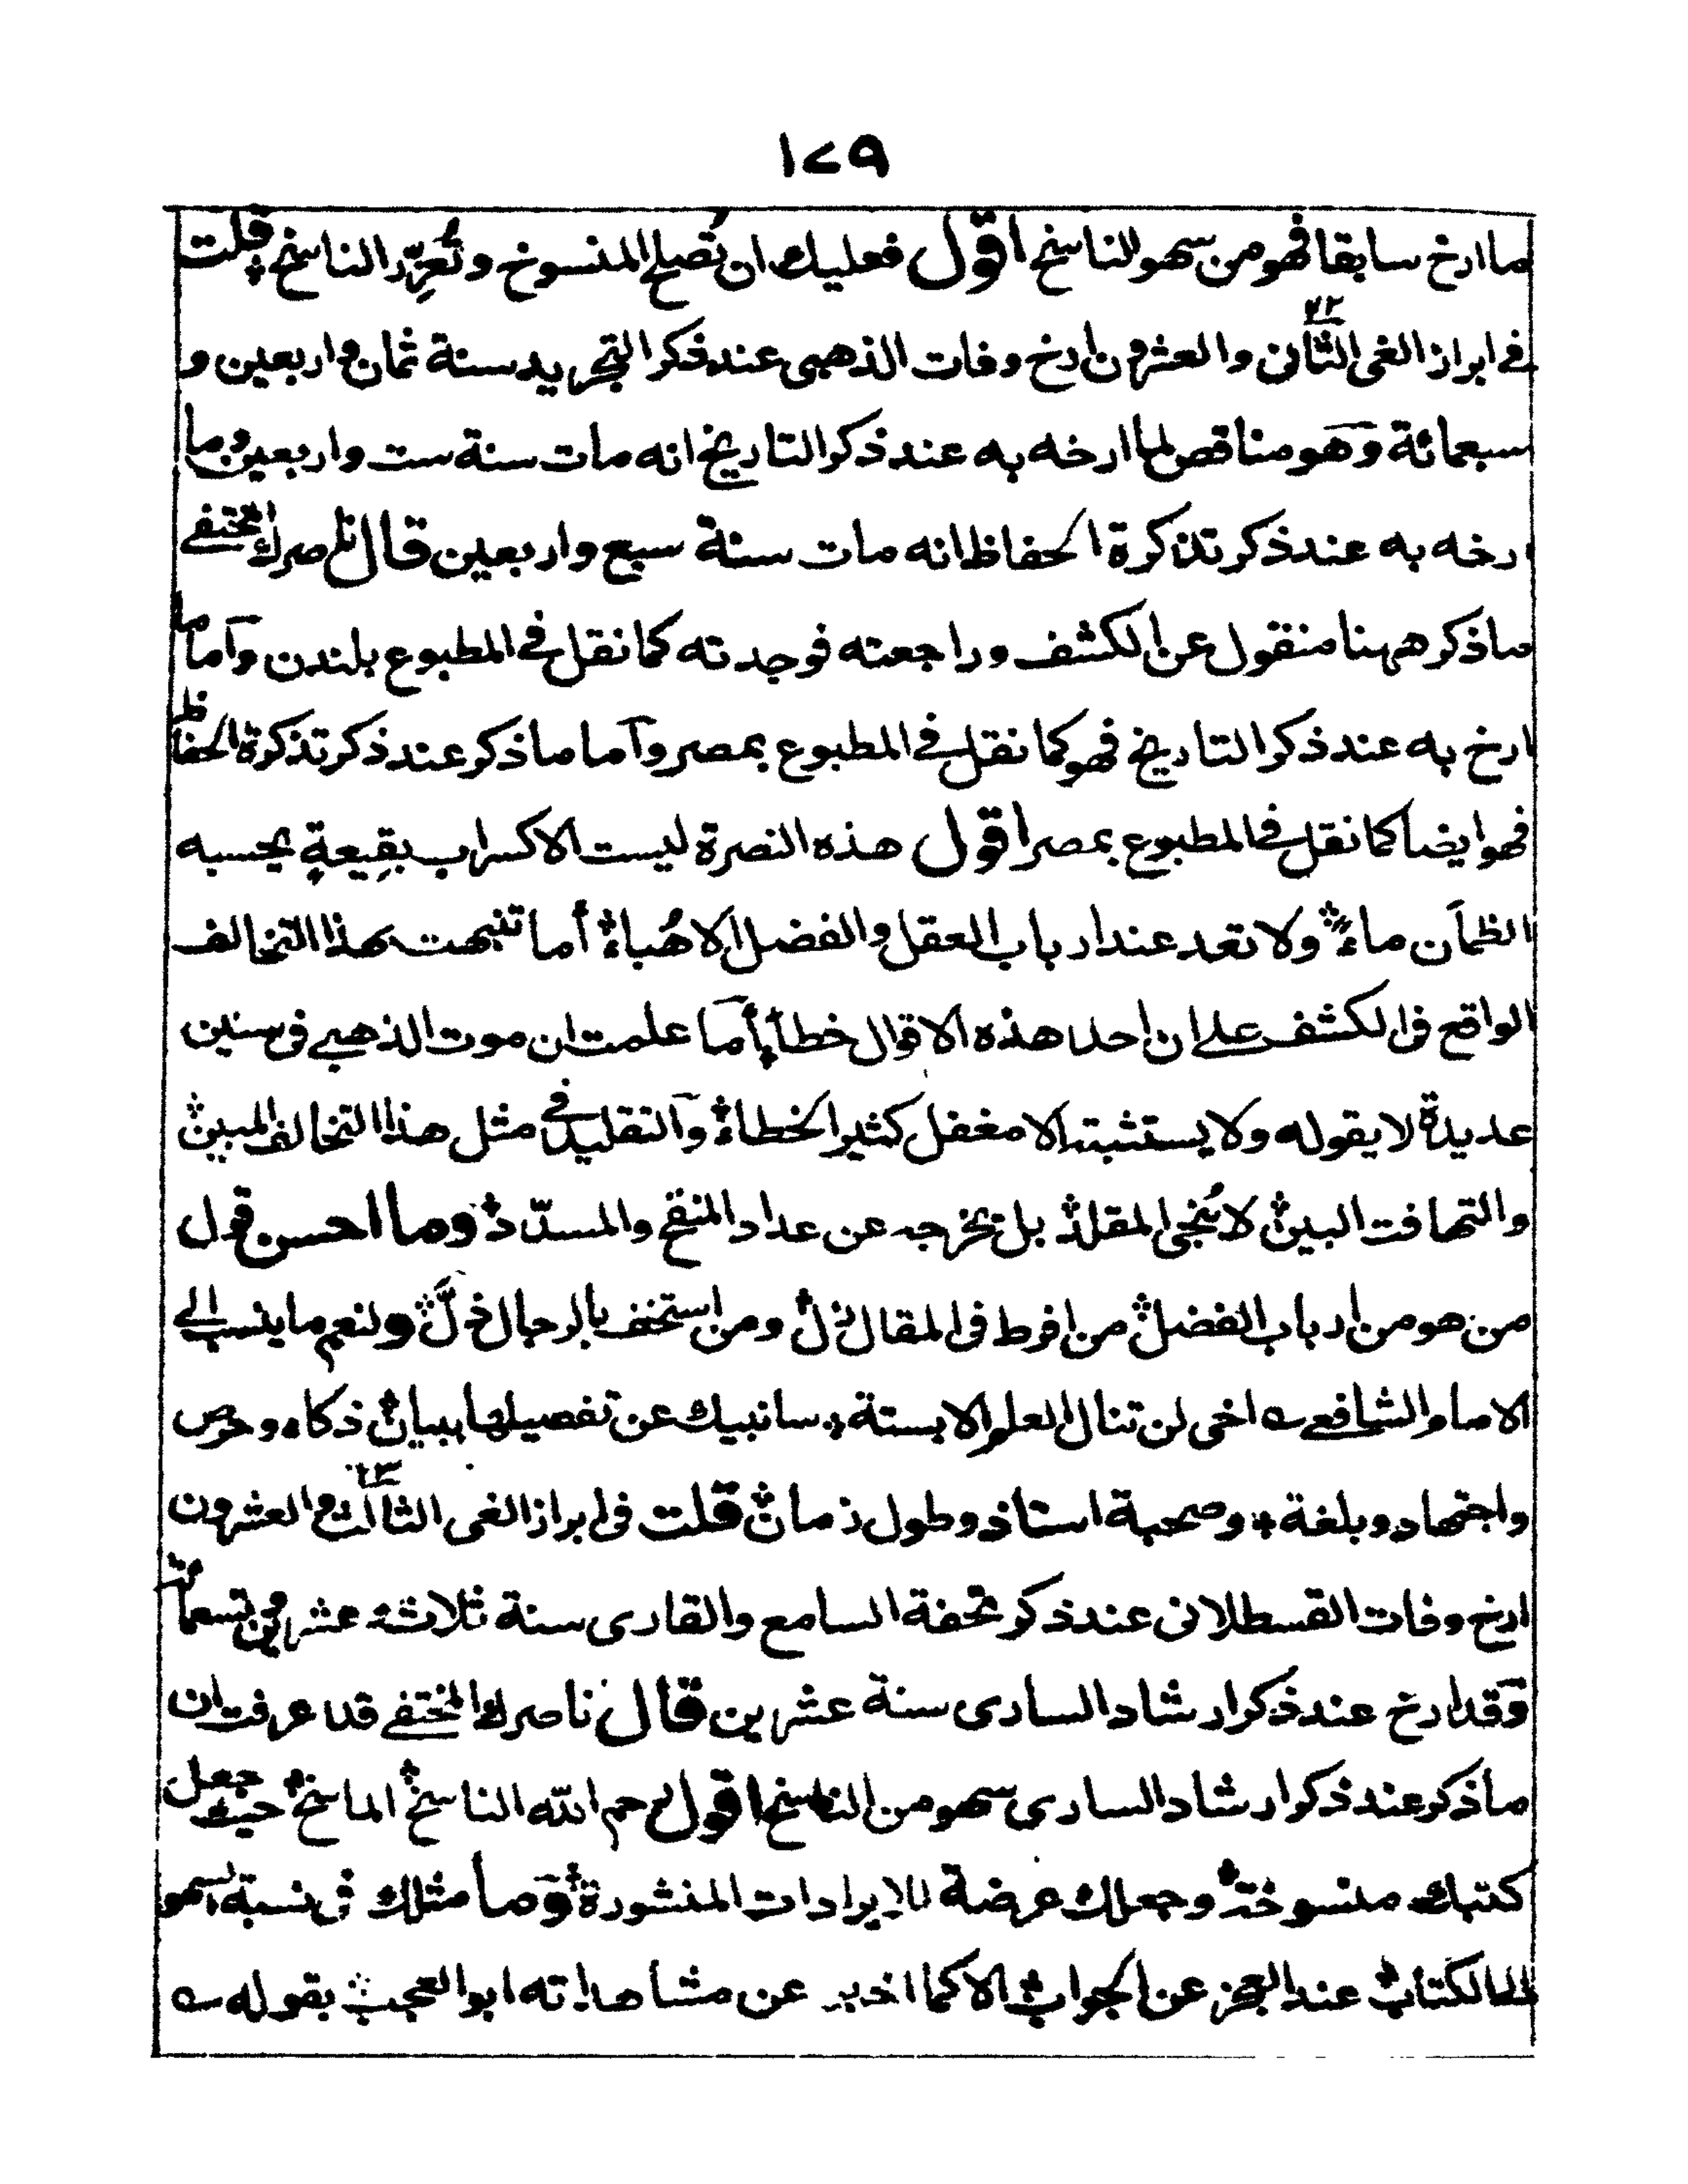 ١٧٩
ما ارخ سابقا فهو من سهو للناسخ اقول فعليك ان تُصلح المنسوخ وتُعزِّر الناسخ قلت
فى ابراز الغى الثانى والعشرون ٢٢ ارخ وفات الذهبى عند ذكر التجريد سنة ثمان واربعين و
سبعمائة وهو مناقض لما ارخه به عند ذكر التاريخ انه مات سنة ست واربعين وما
ارخه به عند ذكر تذكرة الحفاظ انه مات سنة سبع واربعين قال ناصرك المختفى
ما ذكر ههنا منقول عن الكشف وراجعته فوجدته كما نقل فى المطبوع بلندن وأما ما
ارخ به عند ذكر التاريخ فهو كما نقل فى المطبوع بمصر وآما ما ذكر عند ذكر تذكرة الحفاظ
فهو ايضا كما نقل فى المطبوع بمصر اقول هذه النصرة ليست الا كسراب بقِيعةٍ يحسبه
الظمآن ماءً ولا تعد عند ارباب العقل والفضل الا هُباء أما تنبهت بهذا التخالف
الواقع فى الكشف على ان احد هذه الاقوال خطأ أما علمت ان موت الذهبى فى سنين
عديدة لا يقوله ولا يستثبته الا مغفل كثير الخطاء والتقليد فى مثل هذا التخالف المبين
والتهافت البين لا يُنجى المقلد بل يخرجه عن عداد المنقح والمسدّد وما احسن قول
من هو من ارباب الفضل من افرط فى المقال زل ومن استخف بالرجال ذلَّ ولنعم ما ينسب الى
الامام الشافعى اخى لن تنال العلم الا بستة سانبيك عن تفصيلها ببيان ذكاء وحرص
واجتهاد وبلغة وصحبة استاذ وطول زمان قلت فى ابراز الغى الثالث والعشرون ٢٣
ارخ وفات القسطلانى عند ذكر تحفة السامع والقارى سنة ثلاثة عشر من تسعمائة
وقد ارخ عند ذكر ارشاد السارى سنة عشرين قال ناصرك المختفى قد عرفت ان
ما ذكر عند ذكر ارشاد السارى سهو من الناسخ اقول رحم الله الناسخ الماسخ حيث جعل
كتبك منسوخة وجعلك عرضة للايرادات المنشورة وما مثلك فى نسبة السهو
الى الكتاب عند العجز عن الجواب الا كما اخبر عن مشاهداته ابو العجب بقوله